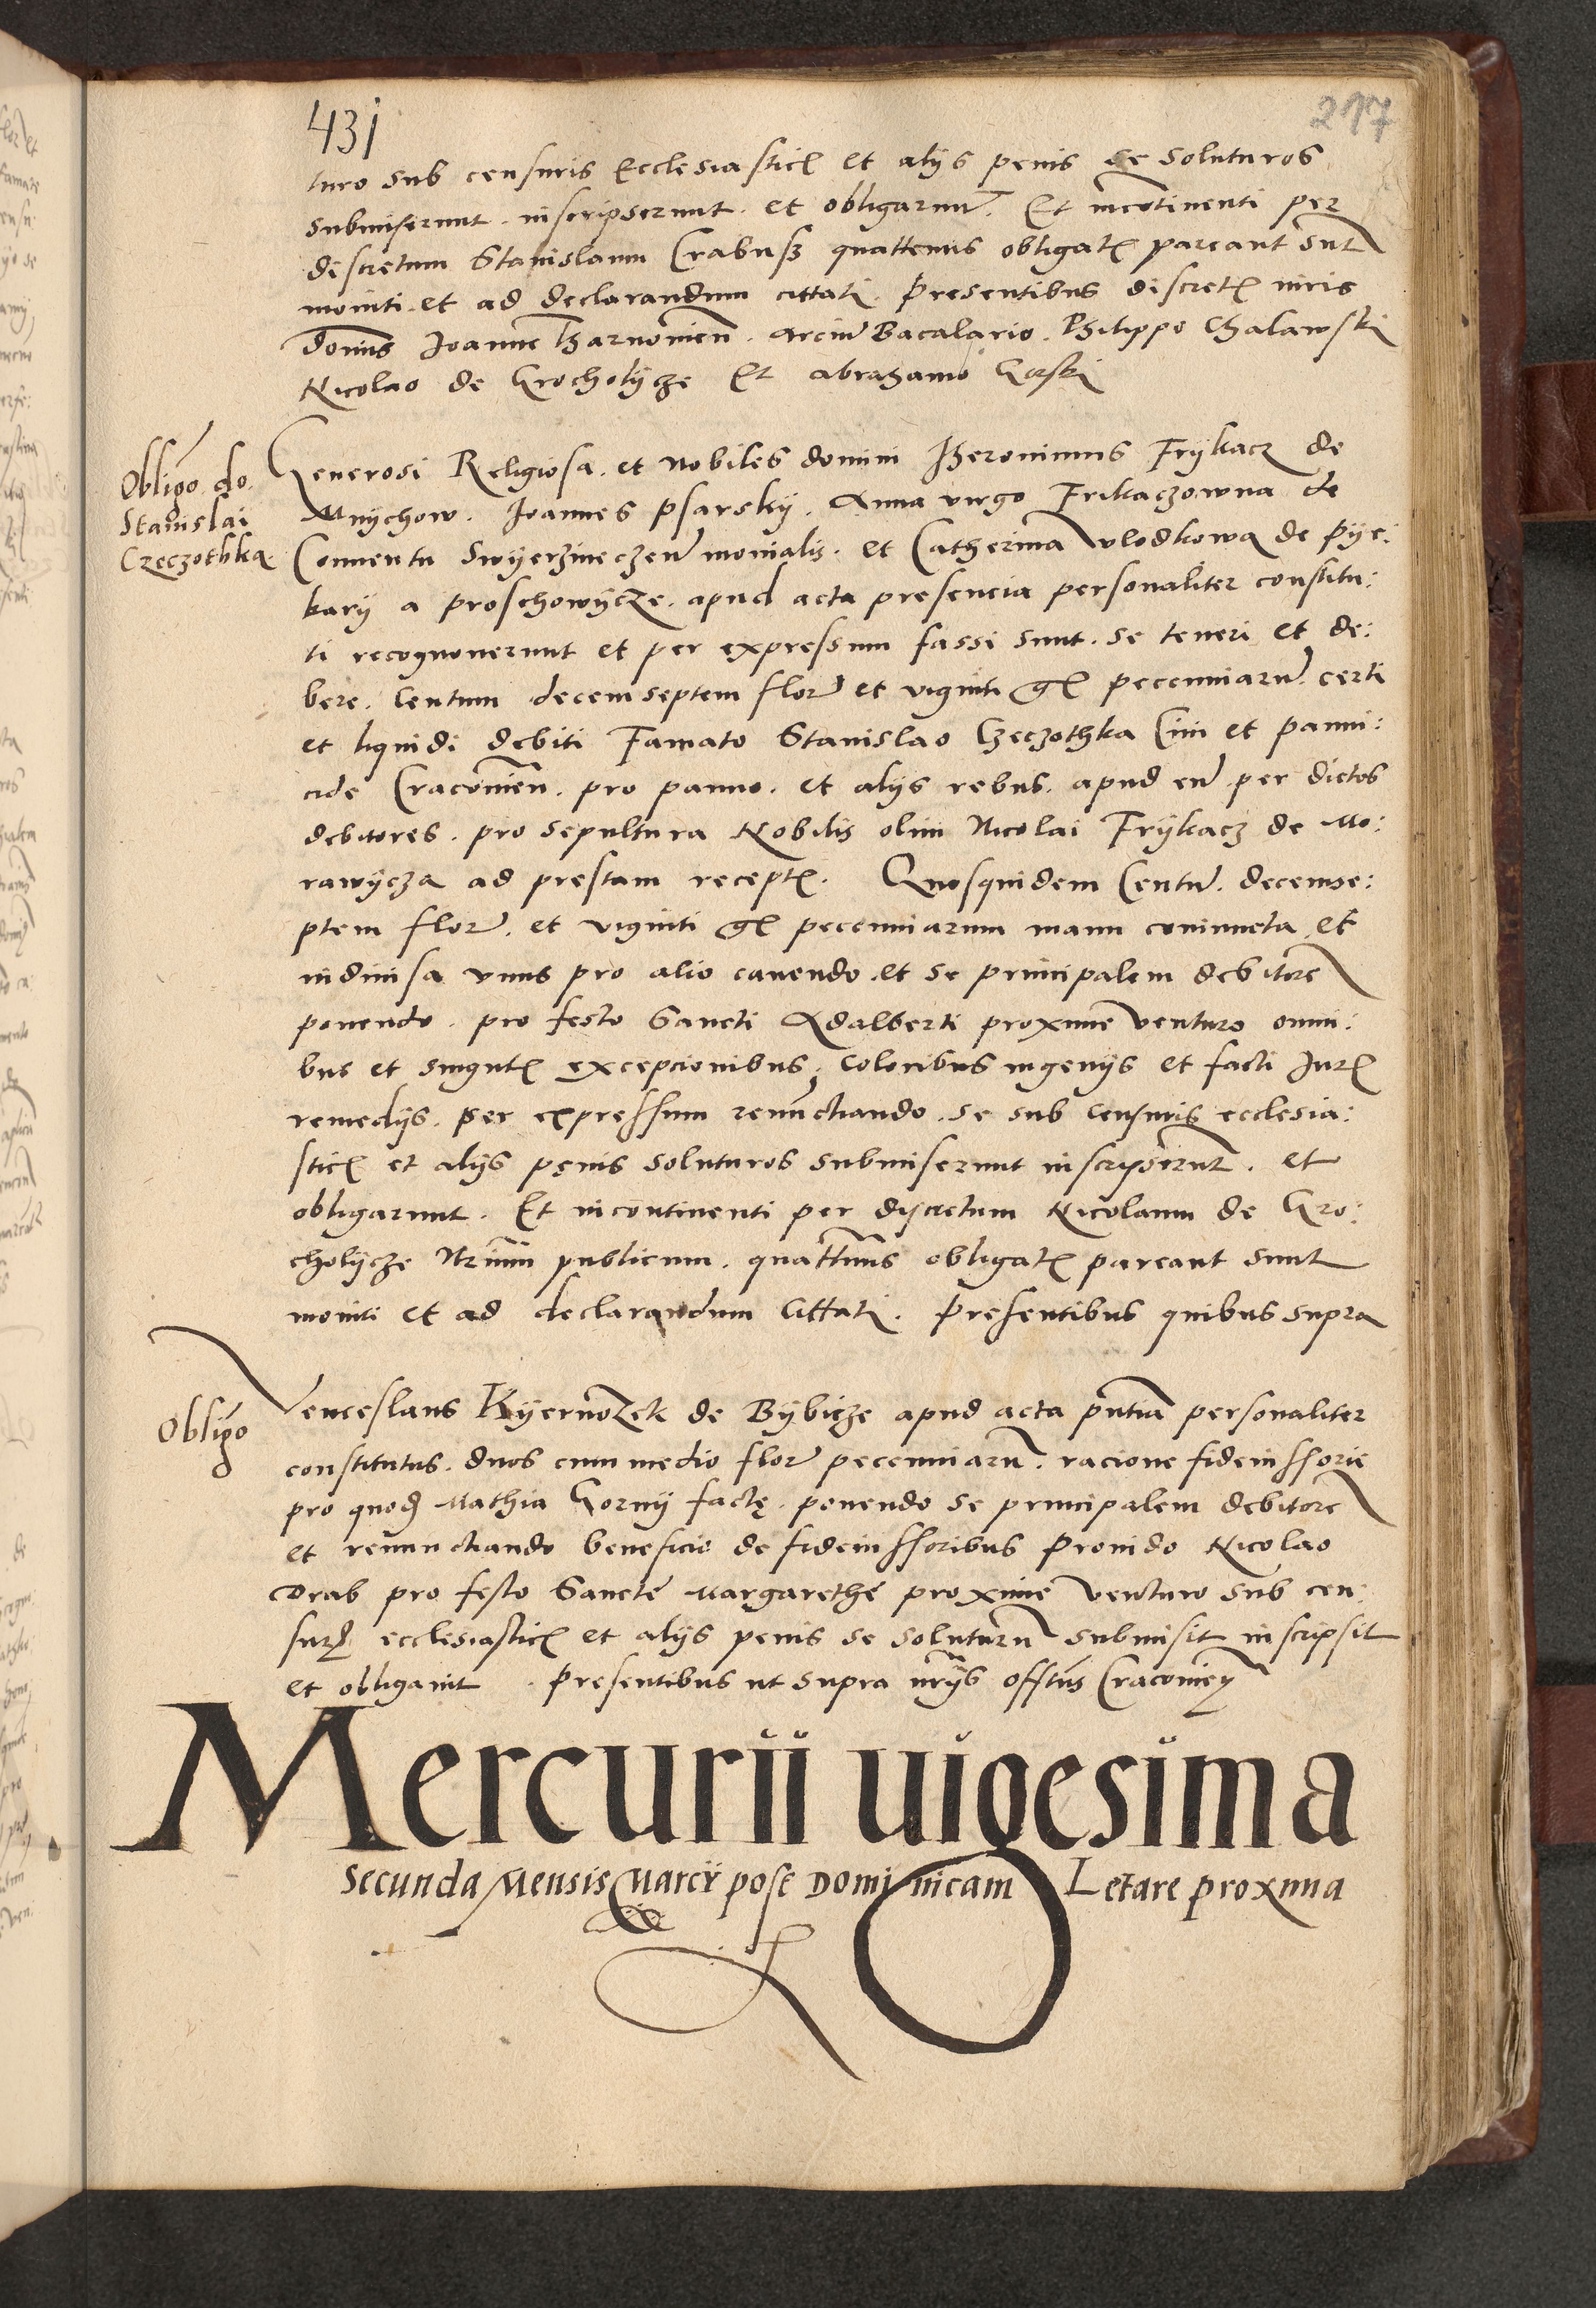 43j
217
turo sub censuris Ecclesiastic et alijs penis se soluturos
submiserunt . inscripserunt . et obligarunt . Et incotinenti per
discretum Stanislaum Crabusz quattenus obligat pareant sut
moniti . et ad declarandum cittati . Presentibus discret viris
domis Joanne Tharnovien . arciu Bacalario . Philippo Chalawski
Nicolao de Grocholycze Et abrahamo Gorski
Obligo do.
Stanislai
Czeczothka
Generosi Religiosa . et Nobiles domini Hieronimus Frykacz de
Mnychow . Joannes Psarsky . Anna virgo Frikaczowna de
Conventu Swyerzineczen monialis . et Catherina vlodkowa de Pye:
kary a proschowycze . apud acta presencia personaliter constitu:
ti recognoverunt et per expressum fassi sunt . se teneri et de:
bere . Centum decemseptem flor et viginti gr pecuniaru . certi
et liquidi debiti Famato Stanislao Czeczothka Civi et panni:
cide Cracovien . pro panno . et alijs rebus . apud eu per dictos
debitores . pro sepultura Nobilis olim Nicolai Frykacz de Mo:
rawycza ad prestam recept . Quosquidem Centu . decemse:
ptem flor . et viginti gr pecuniarum manu coniuncta et
indivisa unus pro alio cavendo . et se principalem debitore
ponendo . pro festo Sancti Adalberti proxime venturo omni:
bus et singulis excepcionibus, coloribus ingenijs et facti Juris
remedijs . per expressum renunctiando . se sub censuris ecclesia:
stic et alijs penis soluturos submiserunt inscripserunt . et
obligarunt . Et incontinenti per discretum Nicolaum de Gro:
cholycze Nrium publicum . quattenus obligat pareant sunt
moniti et ad declarandum cittati . Presentibus quibus supra
Obligo
Venceslaus Kyernozek de Bybicze apud acta pntia personaliter
constitutus . duos cum medio flor pecuniaru . racione fideiussorie
pro quod Mathia Gorny factę . ponendo se principalem debitore
et renunctiando beneficio de fideiussoribus Provido Nicolao
Drab pro festo Sancte Margarethe proxime venturo sub cen:
sur ecclesiastic et alijs penis se soluturu submisit inscripsit
et obligavit . Presentibus ut supra nrijs offtus Cracovien
Mercurii uigesima
secunda Mensis Marcii post Dominicam Letare proxima